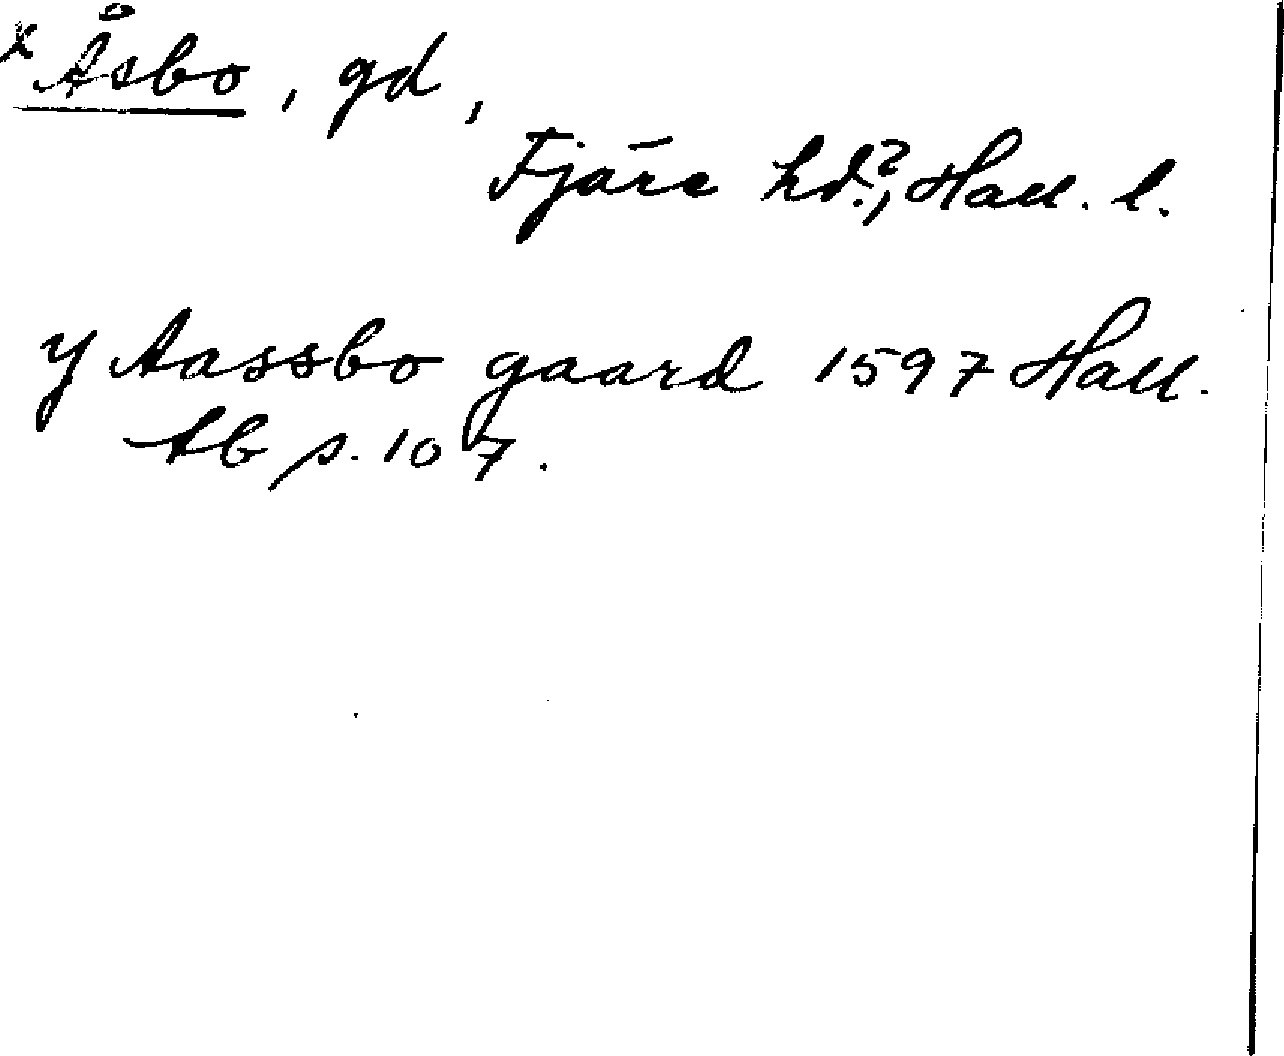 x Åsbo, gd,
Fjäre hd.?, Hall. l.
y Aassbo gaard 1597 Hall.
Ab s. 107.